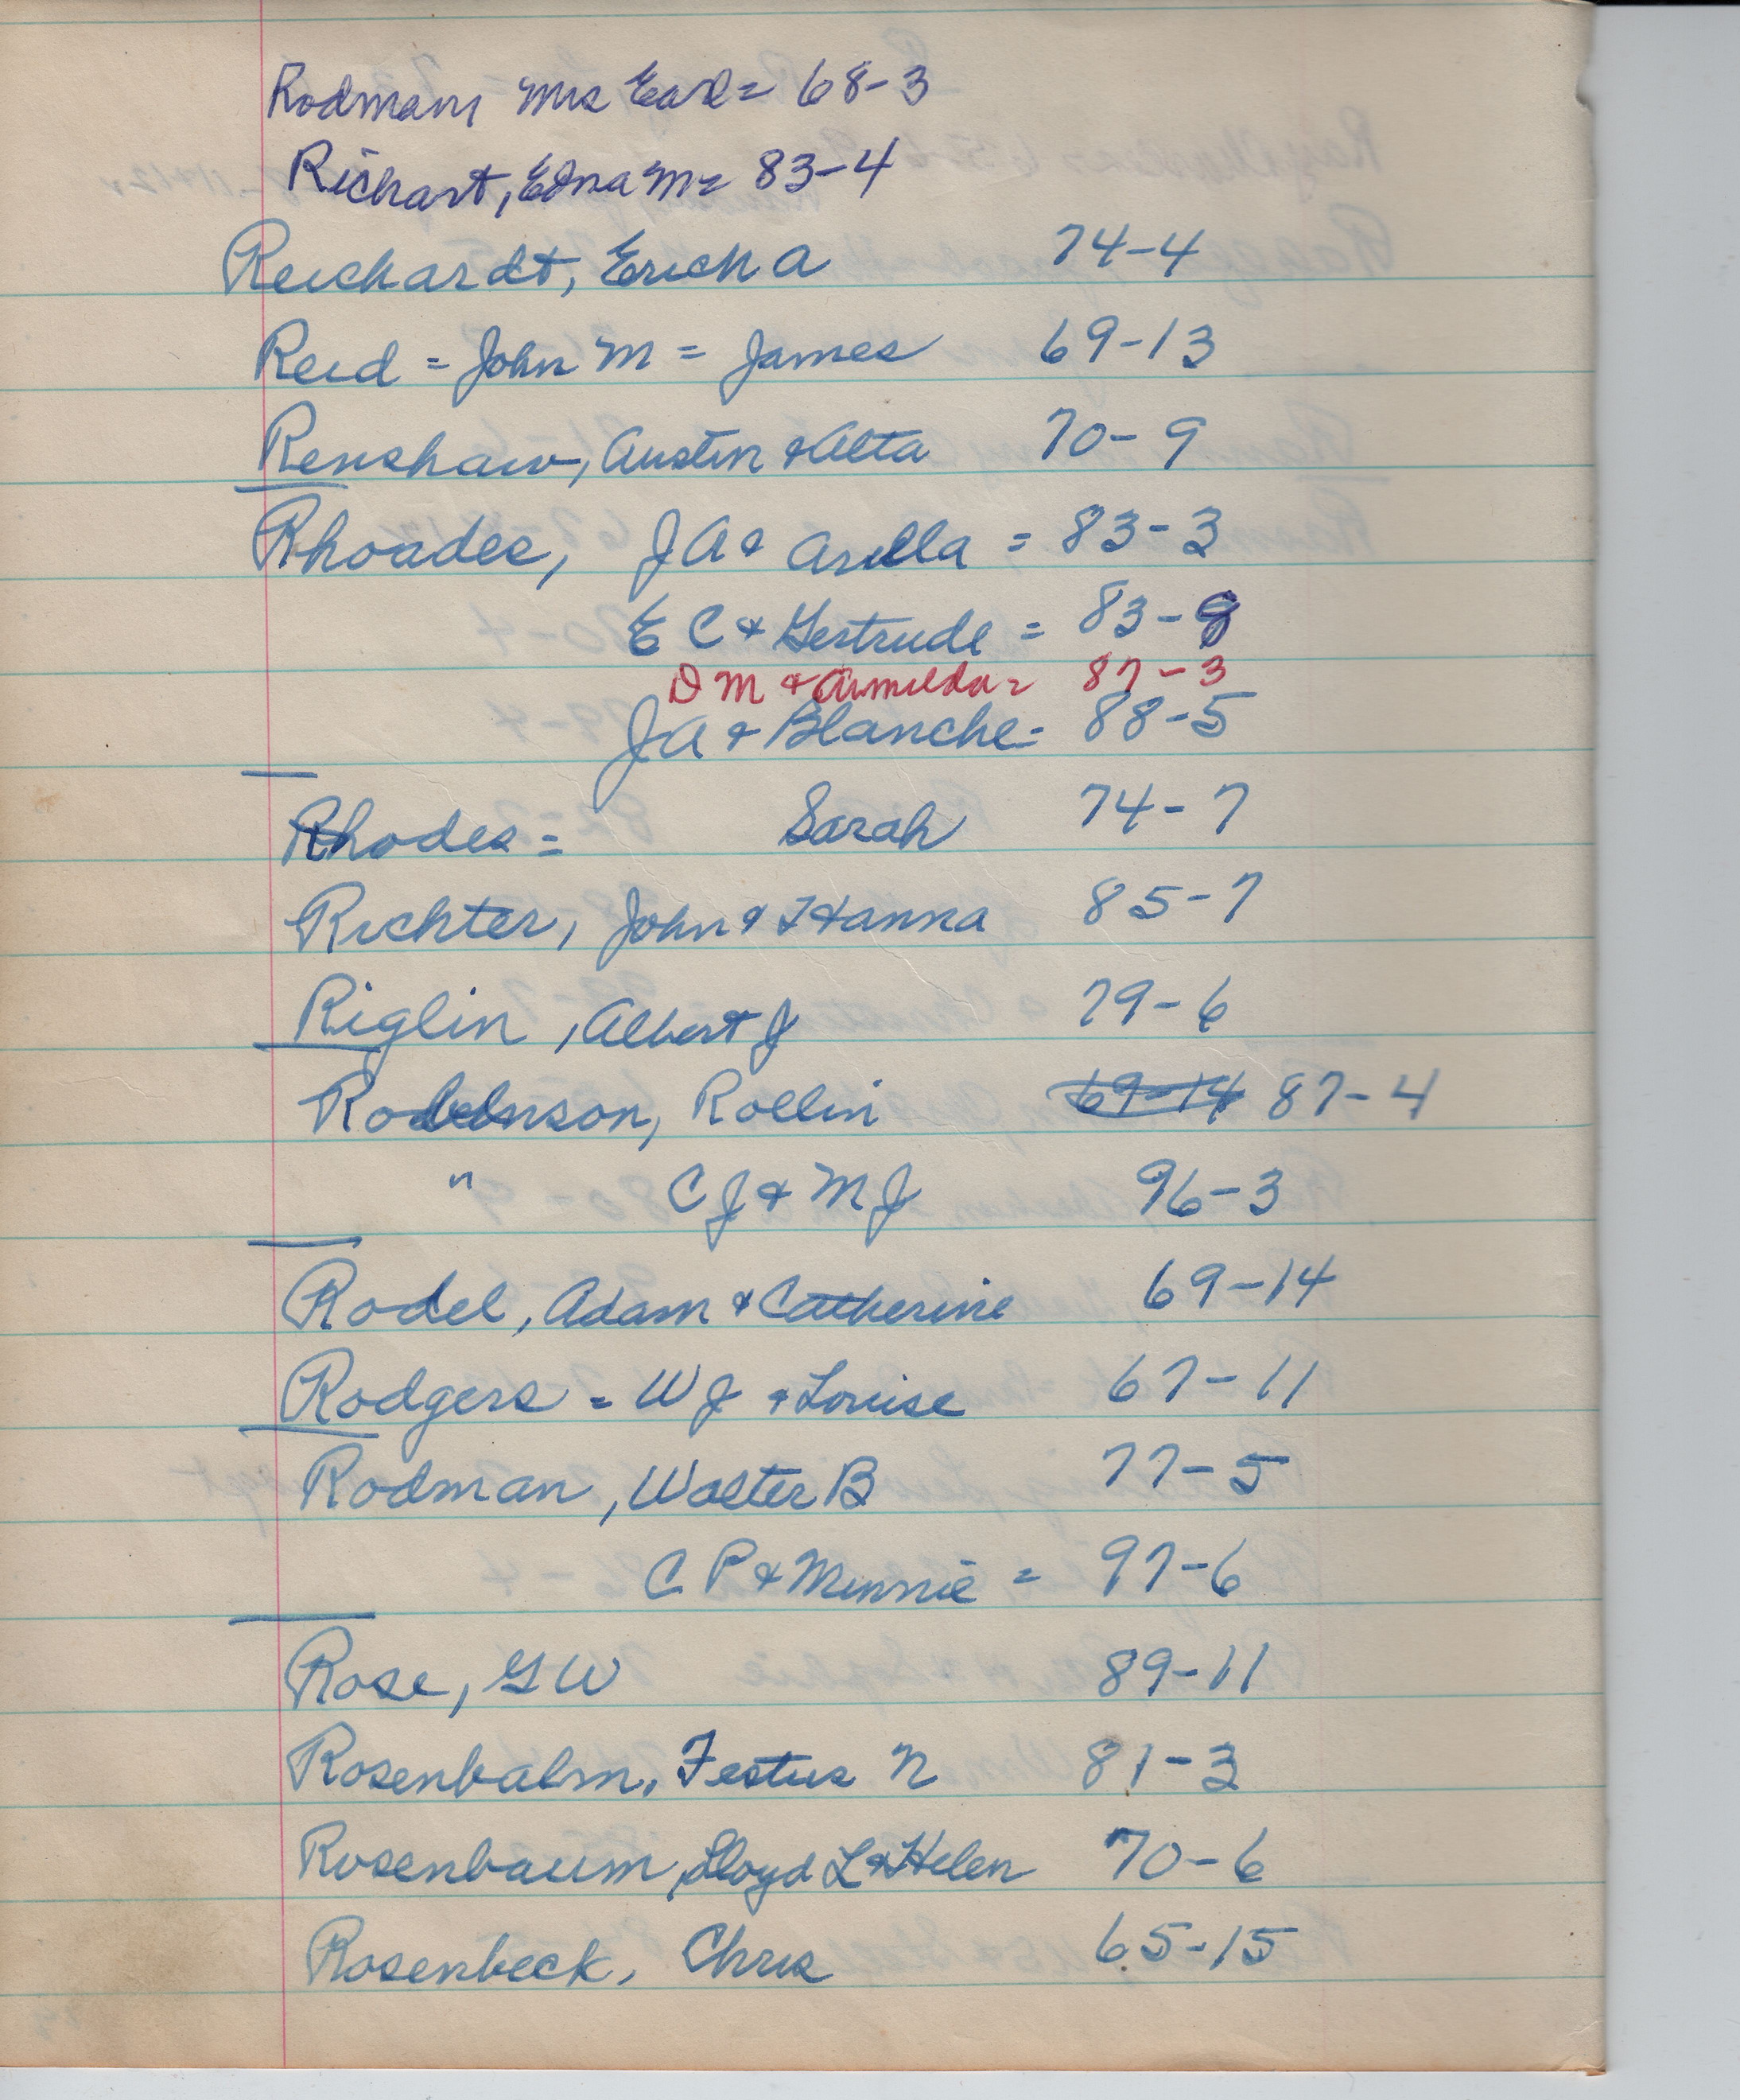 Rodman, Mrs Earl = 68-3
Richart, Edna M = 83-4
Reichardt, Erich A 74-4
Reid = John M = James 69-13
Renshaw, Austin & Alta 70-9
Rhoades, J A & Arilla = 83-3
E C & Gertrude = 83-9
D M & Armilda = 87-3
J A & Blanche = 88-5
Rhodes = Sarah 74-7
Richter, John & Hanna 85-7
Riglin, Albert J 79-6
Rollin 69-14 87-4
" C J & M J 96-3
Rodel, Adam & Catherine 69-14
Rodgers = W J & Louise 67-11
Rodman, Walter B 77-5
C P & Minnie = 97-6
Rose, G W 89-11
Rosenbalm, Festus N 81-3
Rosenbaum, Lloyd L & Helen 70-6
Rosenbeck, Chris 65-15